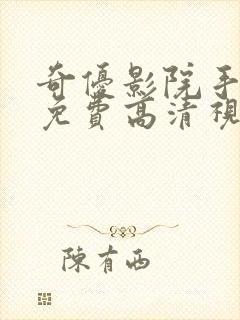 奇優影院手
免費高清視
陳有西